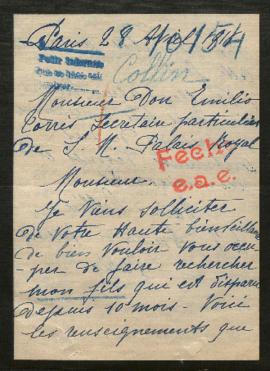 Paris 28 Avril 1915
Collin
Monsieur Don Emilio
Torres Secretaire particulier
de S. M. Palais Royal
Fech
e.a.e.
Monsieur.
Je viens solliciter
de votre Haute bienveillance
de bien vouloir vous occu-
per de faire rechercher
mon fils qui est disparu
depuis 10 mois - Voici
les renseignements que